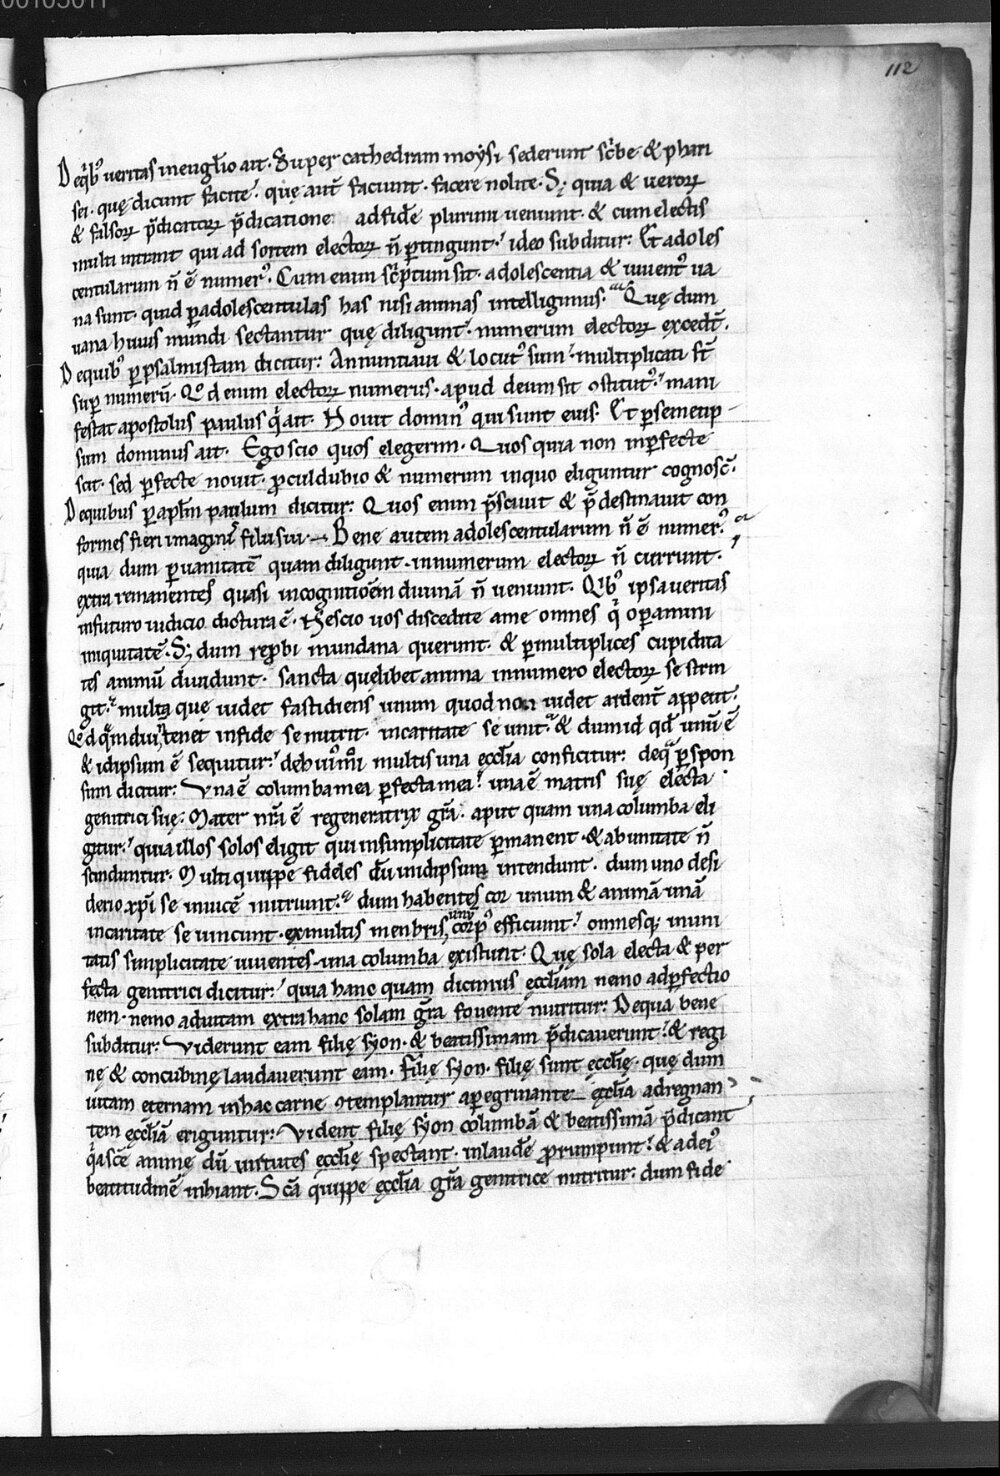 00103011
112
Deq̄bꝰ ueritas ineugl̄io ait. Super cathedram moẏsi sederunt sc̄be & phari
sei. quę dicunt facite? quę aut̄ faciunt. facere nolite. Sꝫ quia & ueroꝝ
& falsoꝝ p̄dicatoꝝ p̄dicatione adfidē plurimi ueniunt. & cum electis
multi intrant qui ad sortem electoꝝ n̄ ꝑtingunt? ideo subditur: Et adoles
centularum n̄ ē numerꝰ. Cum enim sc̄ptum sit. adolescentia & iuuentꝰ ua
na sunt. quid ꝑadolescentulas has nisi animas intelligimus. Quę dum
uana huius mundi sectantur quę diligunt. numerum electoꝝ excedt̄.
Dequibꝰ ꝑpsalmistam dicitur: Annuntiaui & locutꝰ sum. multiplicati st̄
suꝑ numerū. Qd enim electoꝝ numerus. apud deum sit ꝯstitutꝰ. mani
festat apostolus paulus q̄ ait. Nouit dominꝰ qui sunt eius. Et ꝑsemetip
sum dominus ait. Ego scio quos elegerim. Quos quia non inꝑfecte
scit. sed ꝑfecte nouit. ꝓculdubio & numerum inquo eliguntur cognosc̄.
Dequibus ꝑ apl̄m paulum dicitur: Quos enim p̄sciuit & p̄destinauit con
formes fieri imagini filii sui. Bene autem adolescentularum n̄ ē numerꝰ.
quia dum ꝑuanitatē quam diligunt. innumerum electoꝝ n̄ currunt.
extra remanentes quasi incognitionem diuinā n̄ ueniunt. Qibꝰ ipsa ueritas
infuturo iudicio dictura ē. Nescio uos discedite ame omnes q̄ oꝑamini
iniquitatē. Sꝫ dum reꝓbi mundana querunt. & ꝑmultiplices cupidita
tes animū diuidunt. sancta quęlibet anima innumero electoꝝ se strin
git. multaq; quę uidet fastidiens unum quod non uidet ardent̄ appetit.
Qd q̄mdiu tenet infide se nutrit. incaritate se unit. & dum id qd unū ē
& idipsum ē sequitur. multis una ęccl̄ia conficitur: deq̄ ꝑspon
sum dicitur: Una ē columba mea ꝑfecta mea. una ē matris suę electa
genitrici suę: Mater nr̄a ē regeneratrix gr̄a. aput quam una columba eli
gitur. quia illos solos eligit qui insimplicitate ꝑmanent. & abunitate n̄
scinduntur. Multi quippe fideles dū inidipsum intendunt. dum uno desi
derio xp̄i se inuicē nutriunt. dum habentes cor unum & animā unā
incaritate se uincunt. exmultis menbris unū corpꝰ efficiunt. omnesq; inuni
tatis simplicitate uiuentes. una columba existunt. Quę sola electa & per
fecta genitrici dicitur. quia hanc quam dicimus ęccl̄iam nemo adꝑfectio
nem. nemo aduitam extra hanc solam gr̄a fouente nutritur: Dequa bene
subditur: Uiderunt eam filię syon. & beatissimam p̄dicauerunt. & regi
nę & concubinę laudauerunt eam. Filię syon. filię sunt ęccl̄ię. quę dum
uitam eternam inhac carne ꝯtemplantur aꝑegrinante ęccl̄ia adregnan
tem ęccl̄iā eriguntur: Uident filię syon columbā & beatissimā p̄dicant
q̄a sc̄e animę dū uirtutes ęccl̄ię spectant. inlaudē ꝓrumpunt. & adeiꝰ
beatitudinē inhiant. Sc̄a quippe ęccl̄ia gr̄a genitrice nutritur: dum fide